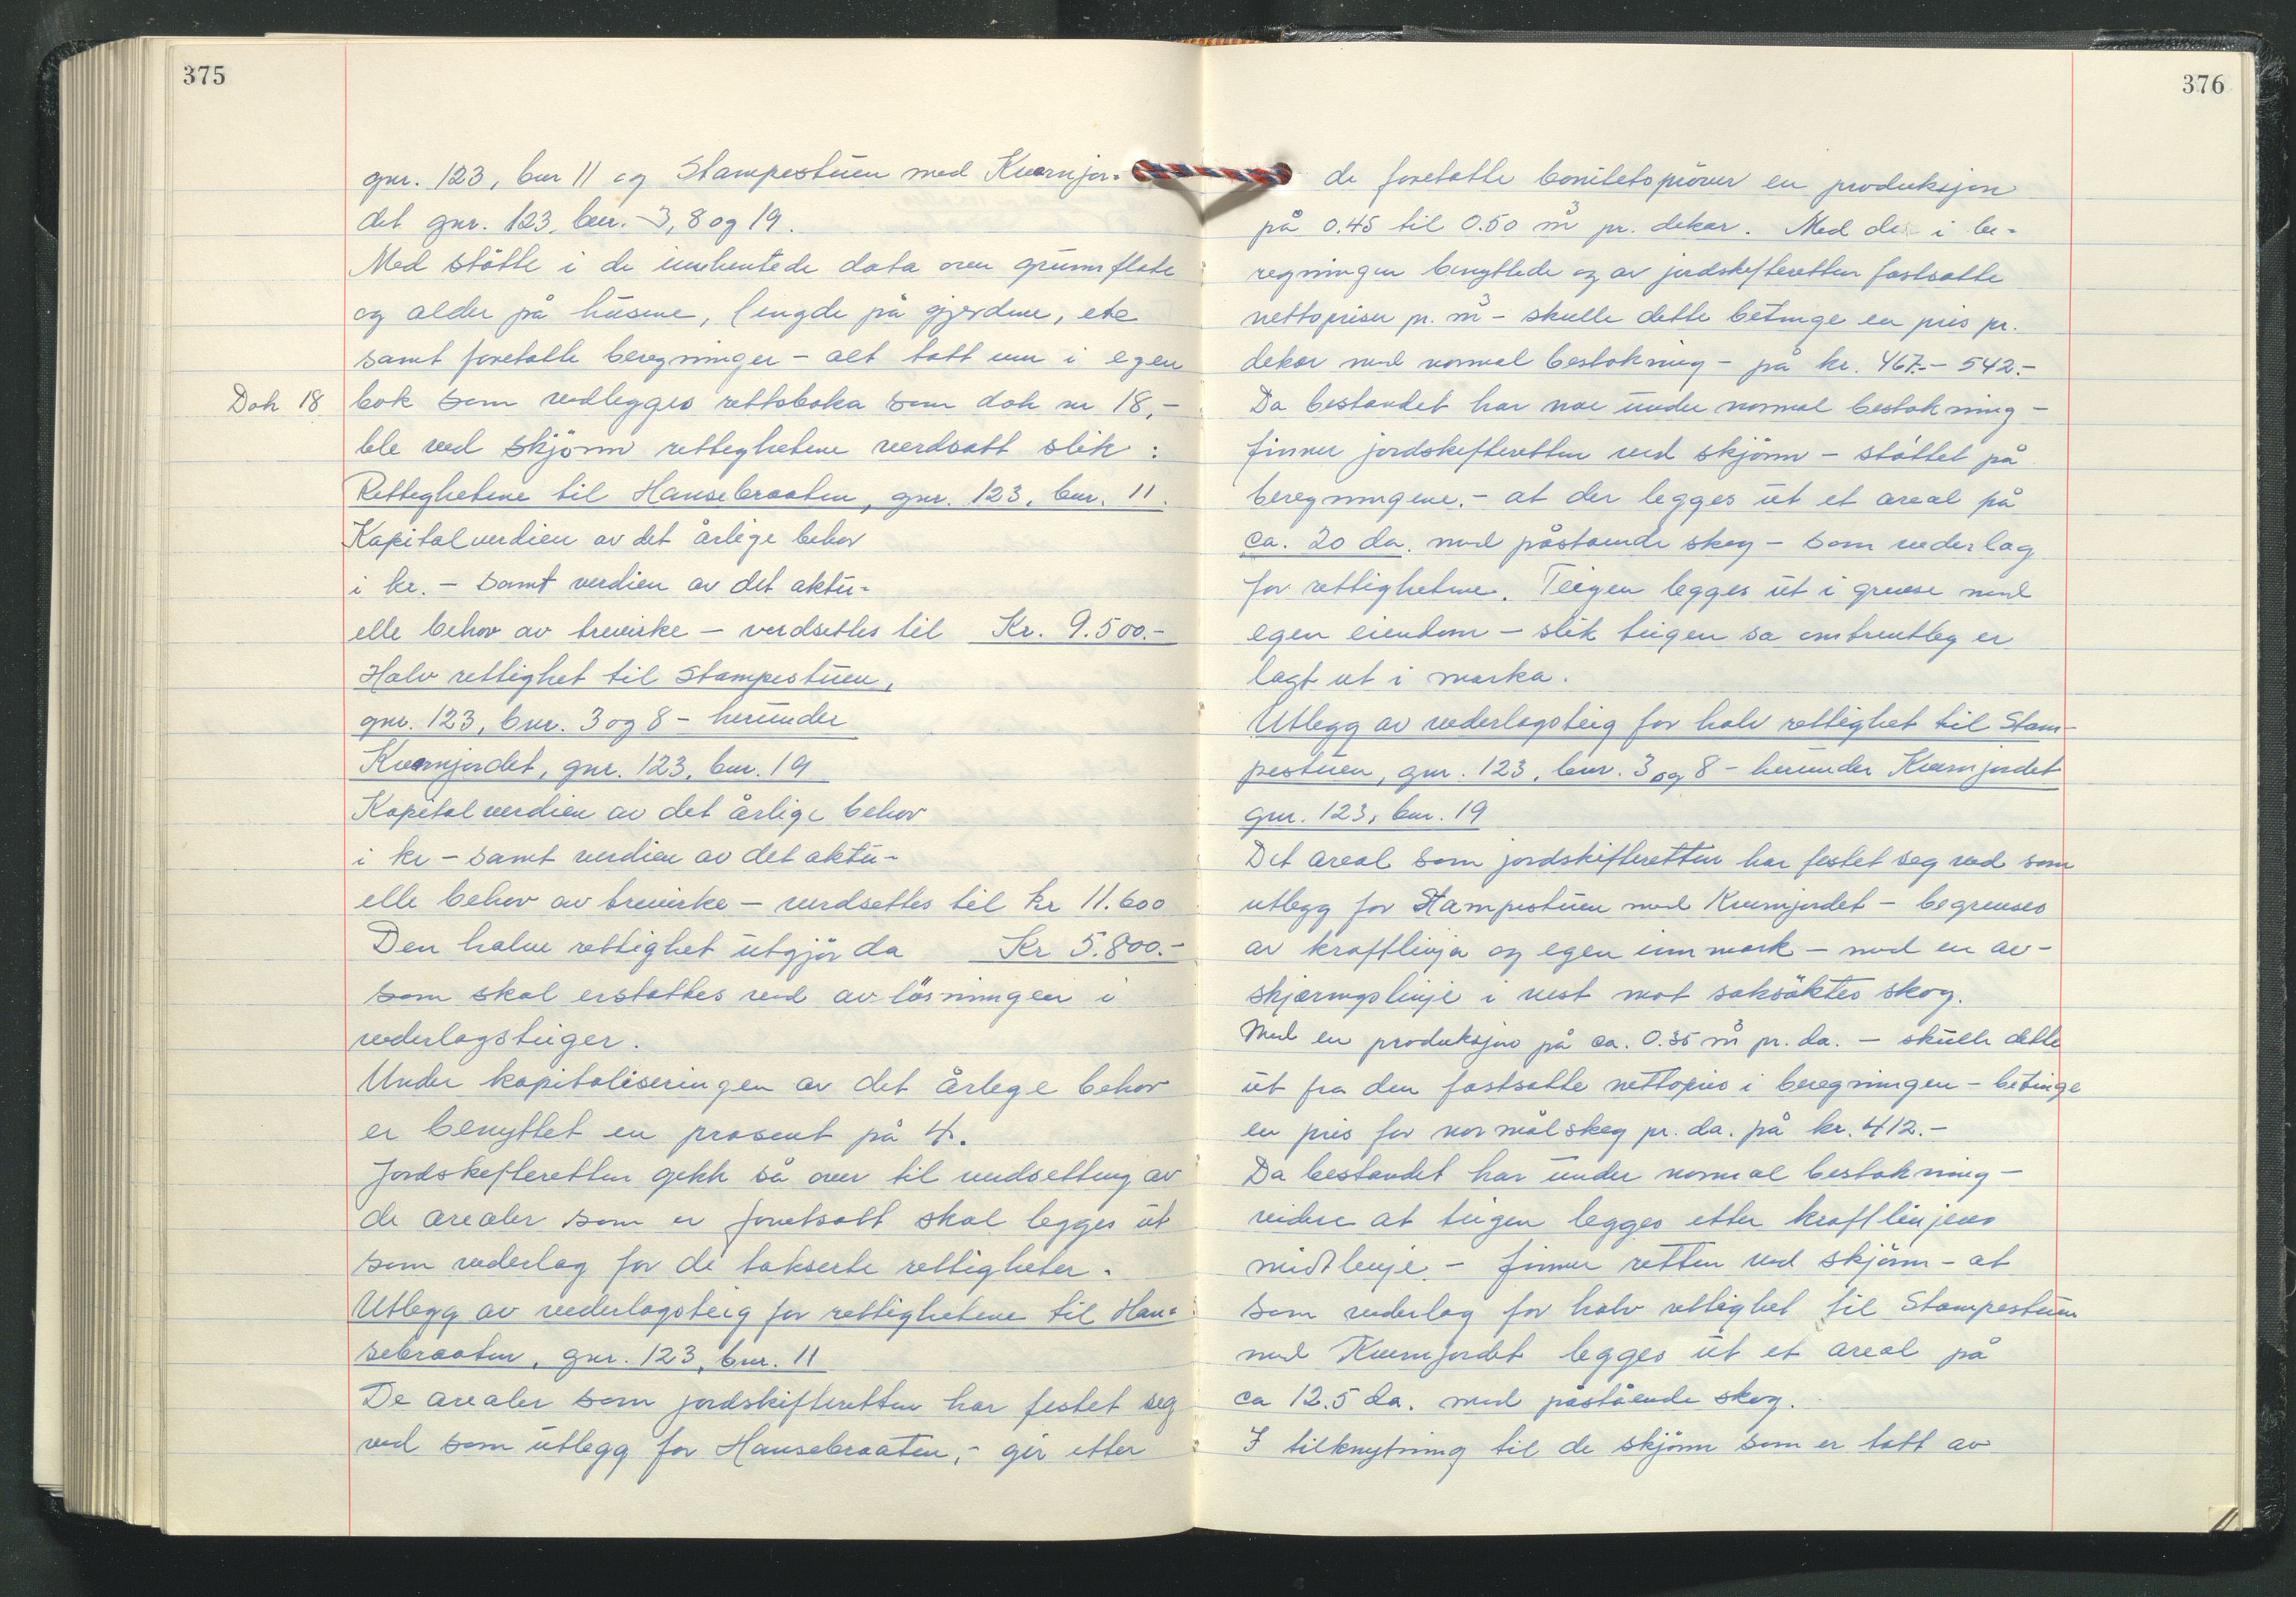 375
gnr. 123, bnr 11 og Stampestuen med Kvernjor-
det gnr. 123, bnr. 3, 8 og 19.
Med støtte i de innhentede data over grunnflate
og alder på husene, lengde på gjerdene, etc
samt foretatte beregninger - alt tatt inn i egen
Dok 18
bok som vedlegges rettsboka som dok nr 18,-
ble ved skjönn rettighetene verdsatt slik:
Rettighetene til Hansebraaten, gnr. 123, bnr. 11.
Kapitalverdien av det årlige behov
i kr. - samt verdien av det aktu-
elle behov av trevirke - verdsettes til Kr. 9.500.-
Halv rettighet til Stampestuen,
gnr. 123, bnr. 3 og 8 - herunder
Kvernjordet, gnr. 123, bnr. 19
Kapitalverdien av det årlige behov
i kr - samt verdien av det aktu-
elle behov av trevirke - verdsettes til kr 11.600
Den halve rettighet utgjör da Kr 5.800.-
som skal erstattes ved avlösningen i
vederlagsteiger.
Under kapitaliseringen av det årlege behov
er benyttet en prosent på 4.
Jordskifteretten gikk så over til verdsetting av
de arealer som er foretsatt skal legges ut
som vederlag for de takserte rettigheter.
Utlegg av vederlagsteig for rettighetene til Han-
sebraaten, gnr. 123, bnr. 11
De arealer som jordskifteretten har festet seg
ved som utlegg for Hansebraaten, - gir etter
376
de foretatte bonitetspröver en produksjon
på 0.45 til 0.50 m³ pr. dekar. Med de i be-
regningen benyttede og av jordskifteretten fastsatte
nettopriser pr. m³ - skulle dette betinge en pris pr.
dekar med normal bestokning - på kr. 467.- - 542.-
Da bestandet har noe under normal bestokning -
finner jordskifteretten ved skjönn - stöttet på
beregningene. - at der legges ut et areal på
ca. 20 da. med påstående skog - som vederlag
for rettighetene. Teigen legges ut i grense med
egen eiendom - slik teigen sa omtrentleg er
lagt ut i marka.
Utlegg av vederlagsteig for halv rettighet til Stam-
pestuen, gnr. 123, bnr. 3 og 8 - herunder Kvernjordet
gnr. 123, bnr. 19
Det areal som jordskifteretten har festet seg ved som
utlegg for Stampestuen med Kvernjordet - begrenses
av kraftlinja og egen innmark - med en av-
skjæringslinje i vest mot saksöktes skog.
Med en produksjon på ca. 0.35 m³ pr. da. - skulle dette
ut fra den fastsatte nettopris i beregningen - betinge
en pris for normalskog pr. da. på kr. 412.-
Da bestandet har under normal bestokning -
videre at teigen legges etter kraftlinjens
midtlinje - finner retten ved skjönn - at
som vederlag for halv rettighet til Stampestuen
med Kvernjordet legges ut et areal på
ca 12.5 da. med påstående skog.
I tilknytning til de skjönn som er tatt av